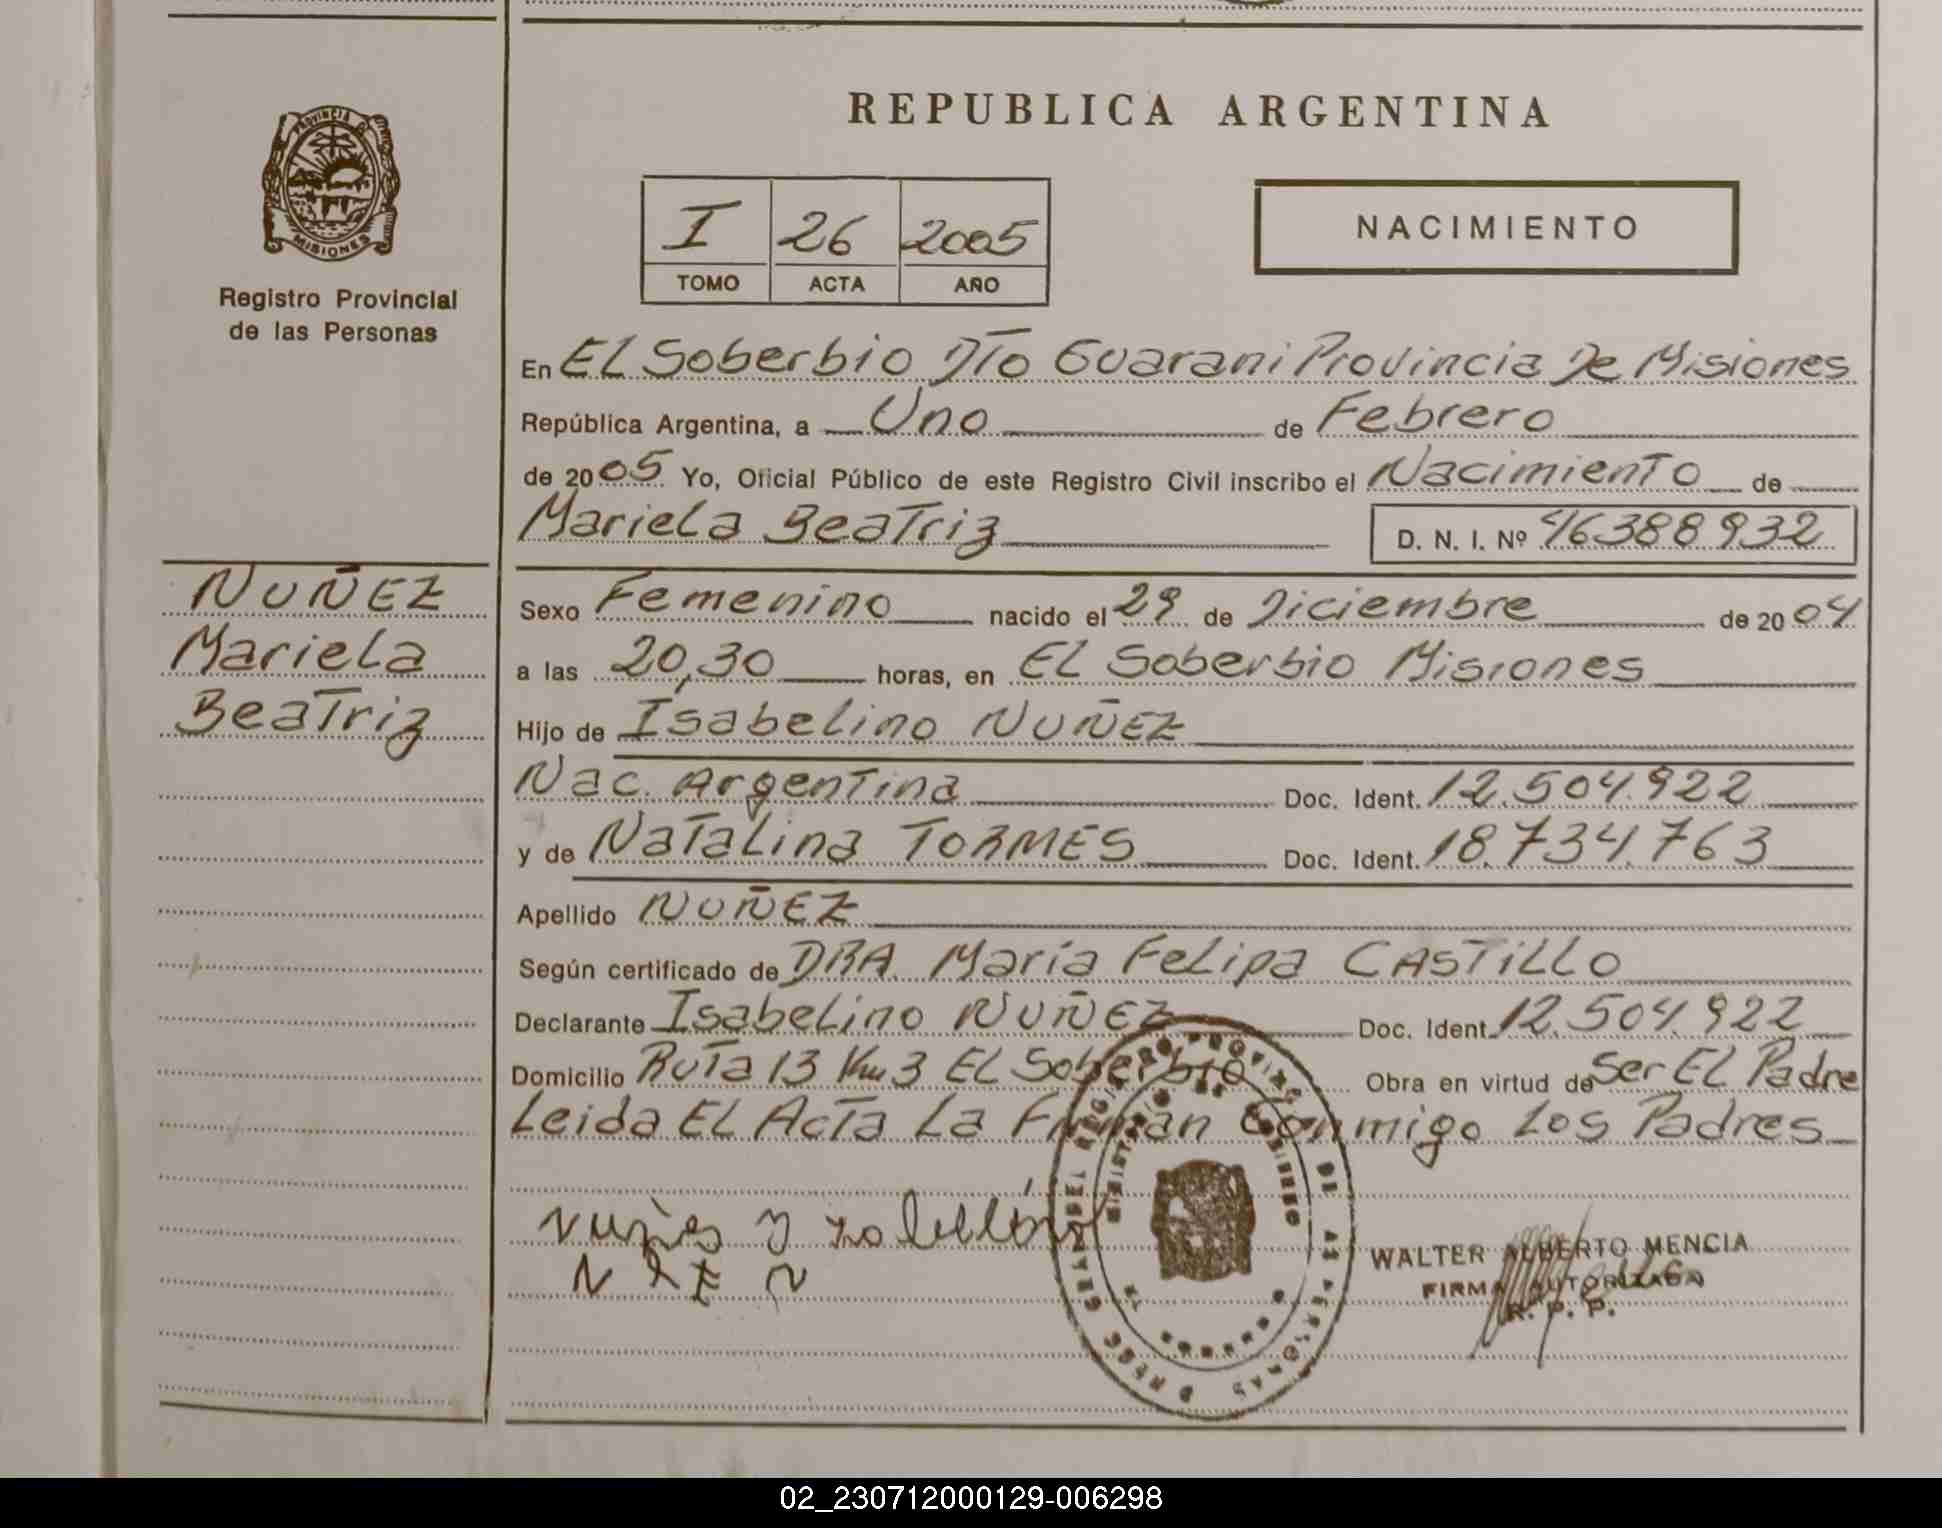 REPUBLICA ARGENTINA
PROVINCIA D
MISIONES
Registro Provincial
de las Personas
I 26 2005
TOMO ACTA AÑO
NACIMIENTO
En EL Soberbio DTo Guarani Provincia De Misiones
República Argentina, a Uno de Febrero
de 2005 Yo, Oficial Público de este Registro Civil inscribo el Nacimiento de
Mariela Beatriz D. N. I. Nº 46388932
NUÑEZ
Mariela
Beatriz
Sexo Femenino nacido el 29 de Diciembre de 2004
a las 20,30 horas, en EL Soberbio Misiones
Hijo de Isabelino NUÑEZ
Nac. Argentina Doc. Ident. 12.504.922
y de Natalina TORMES Doc. Ident. 18.734.763
Apellido NUÑEZ
Según certificado de DRA. María Felipa CASTILLO
Declarante Isabelino NUÑEZ Doc. Ident. 12.504.922
Domicilio Ruta 13 Km 3 EL Soberbio Obra en virtud de Ser EL Padre
Leida EL Acta La Firman Conmigo Los Padres
WALTER ALBERTO MENCIA
FIRMA AUTORIZADA
R. P. P.
02_230712000129-006298